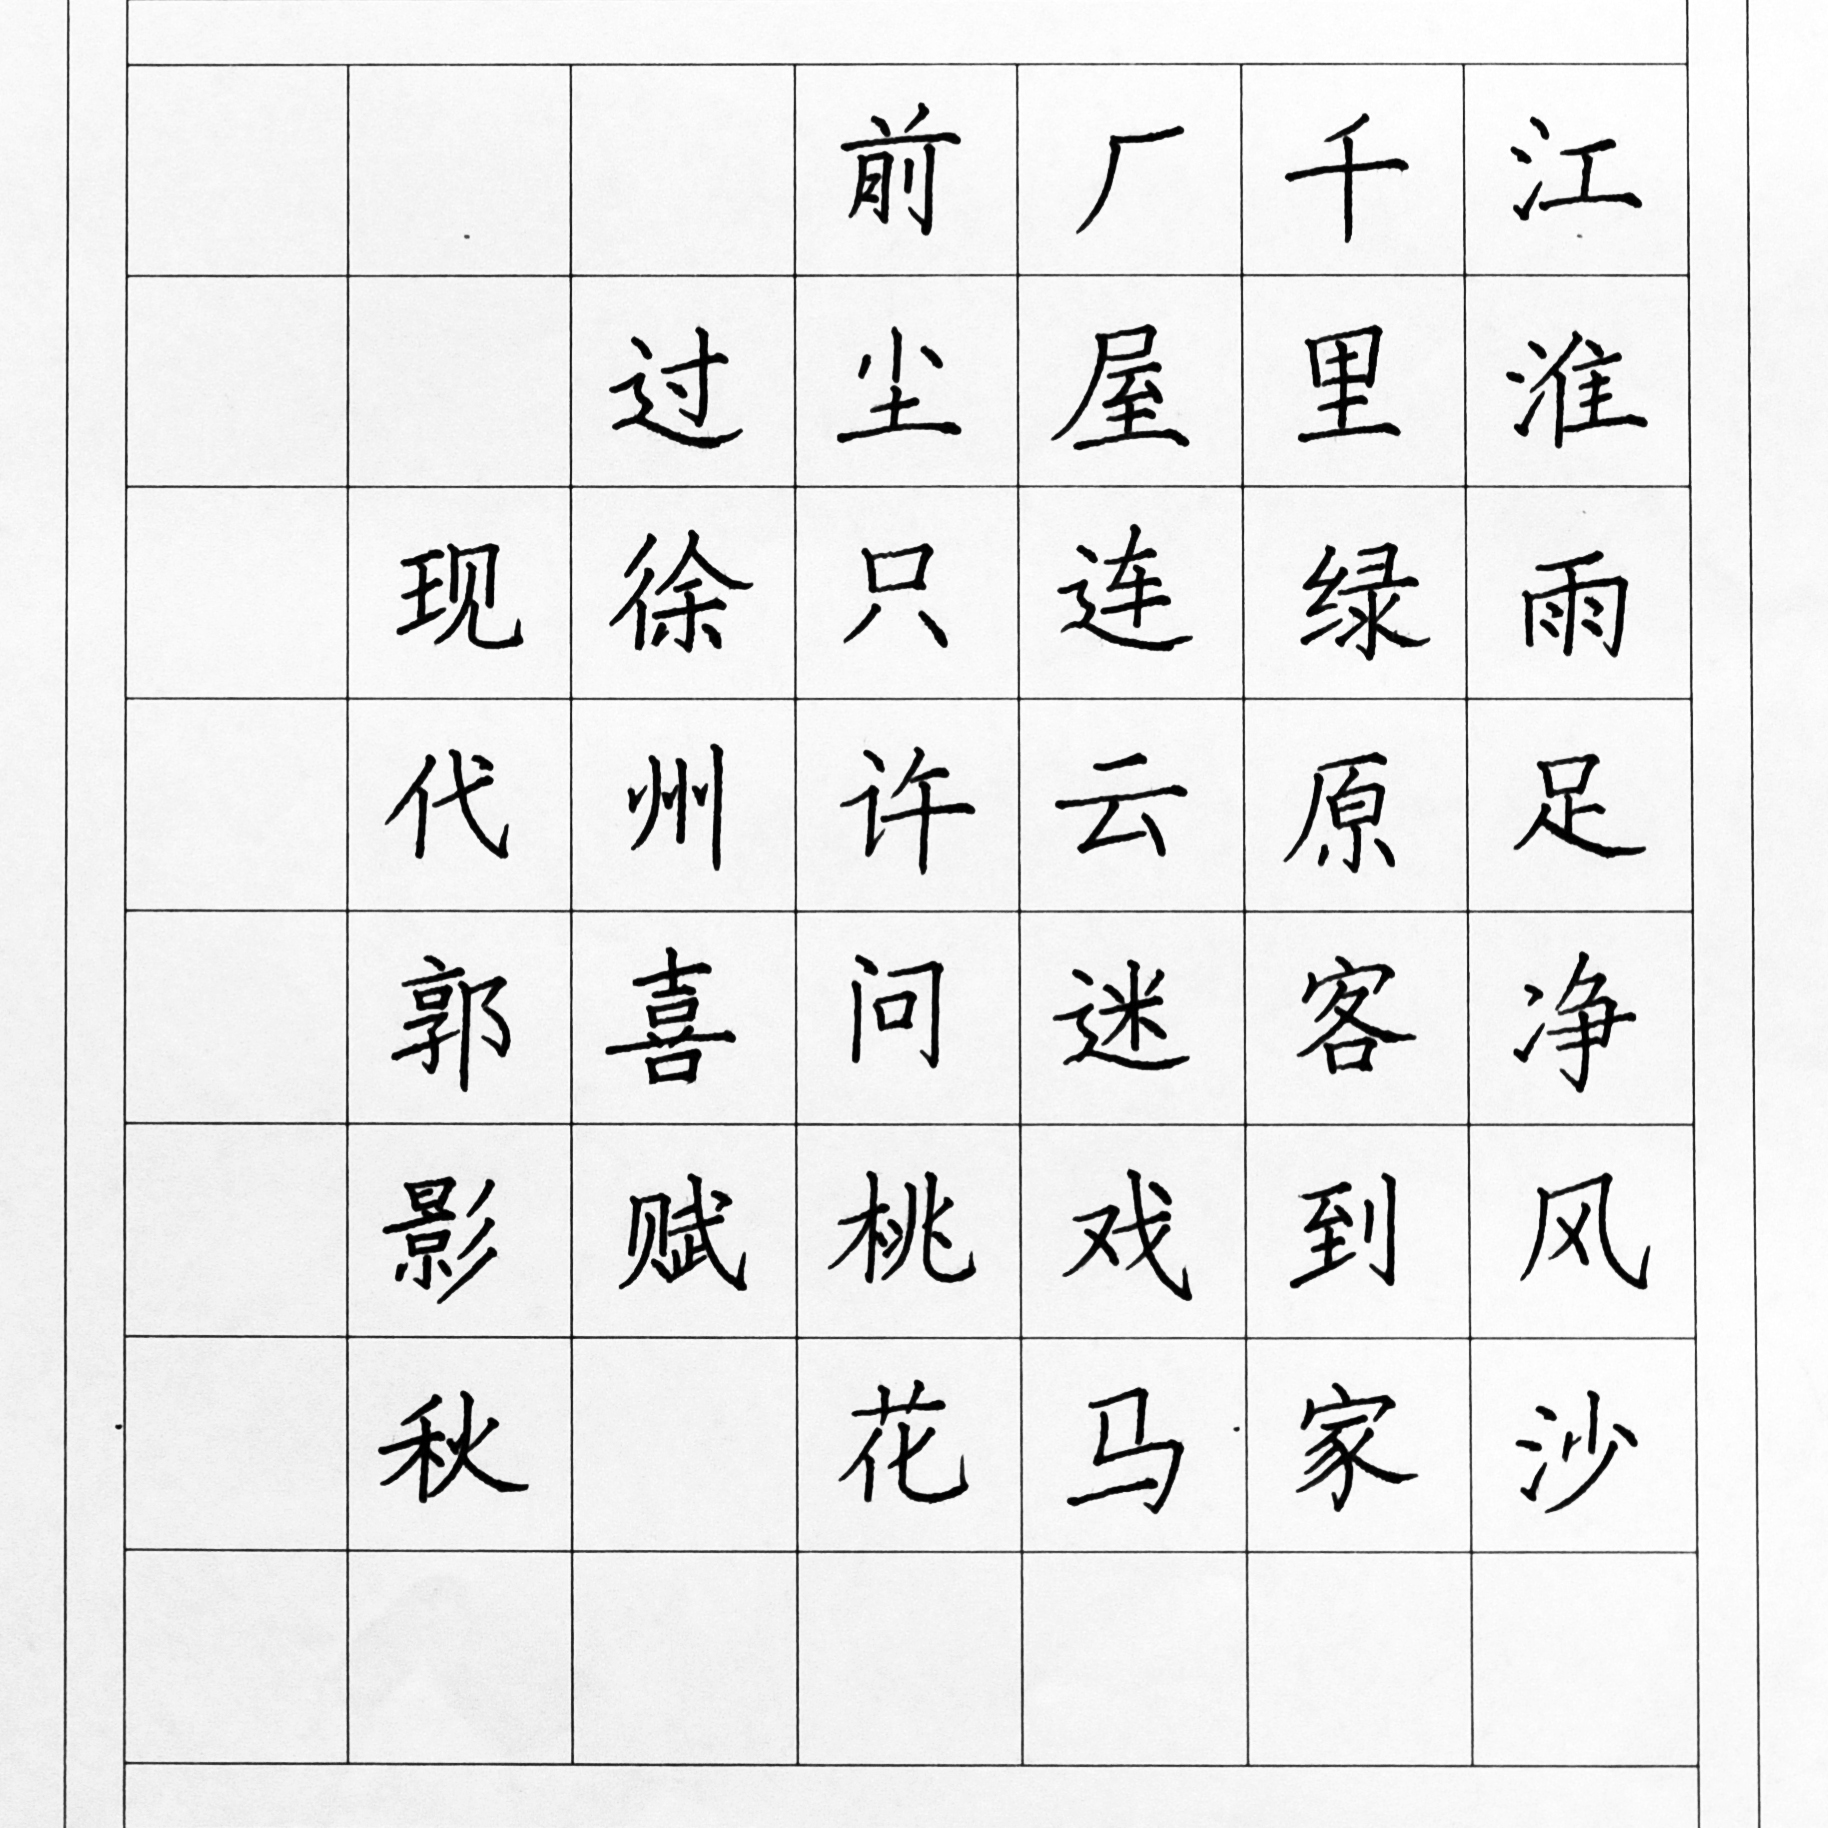 江淮雨足净风沙
千里绿原客到家
厂屋连云迷戏马
前尘只许问桃花
过徐州喜赋
现代郭影秋